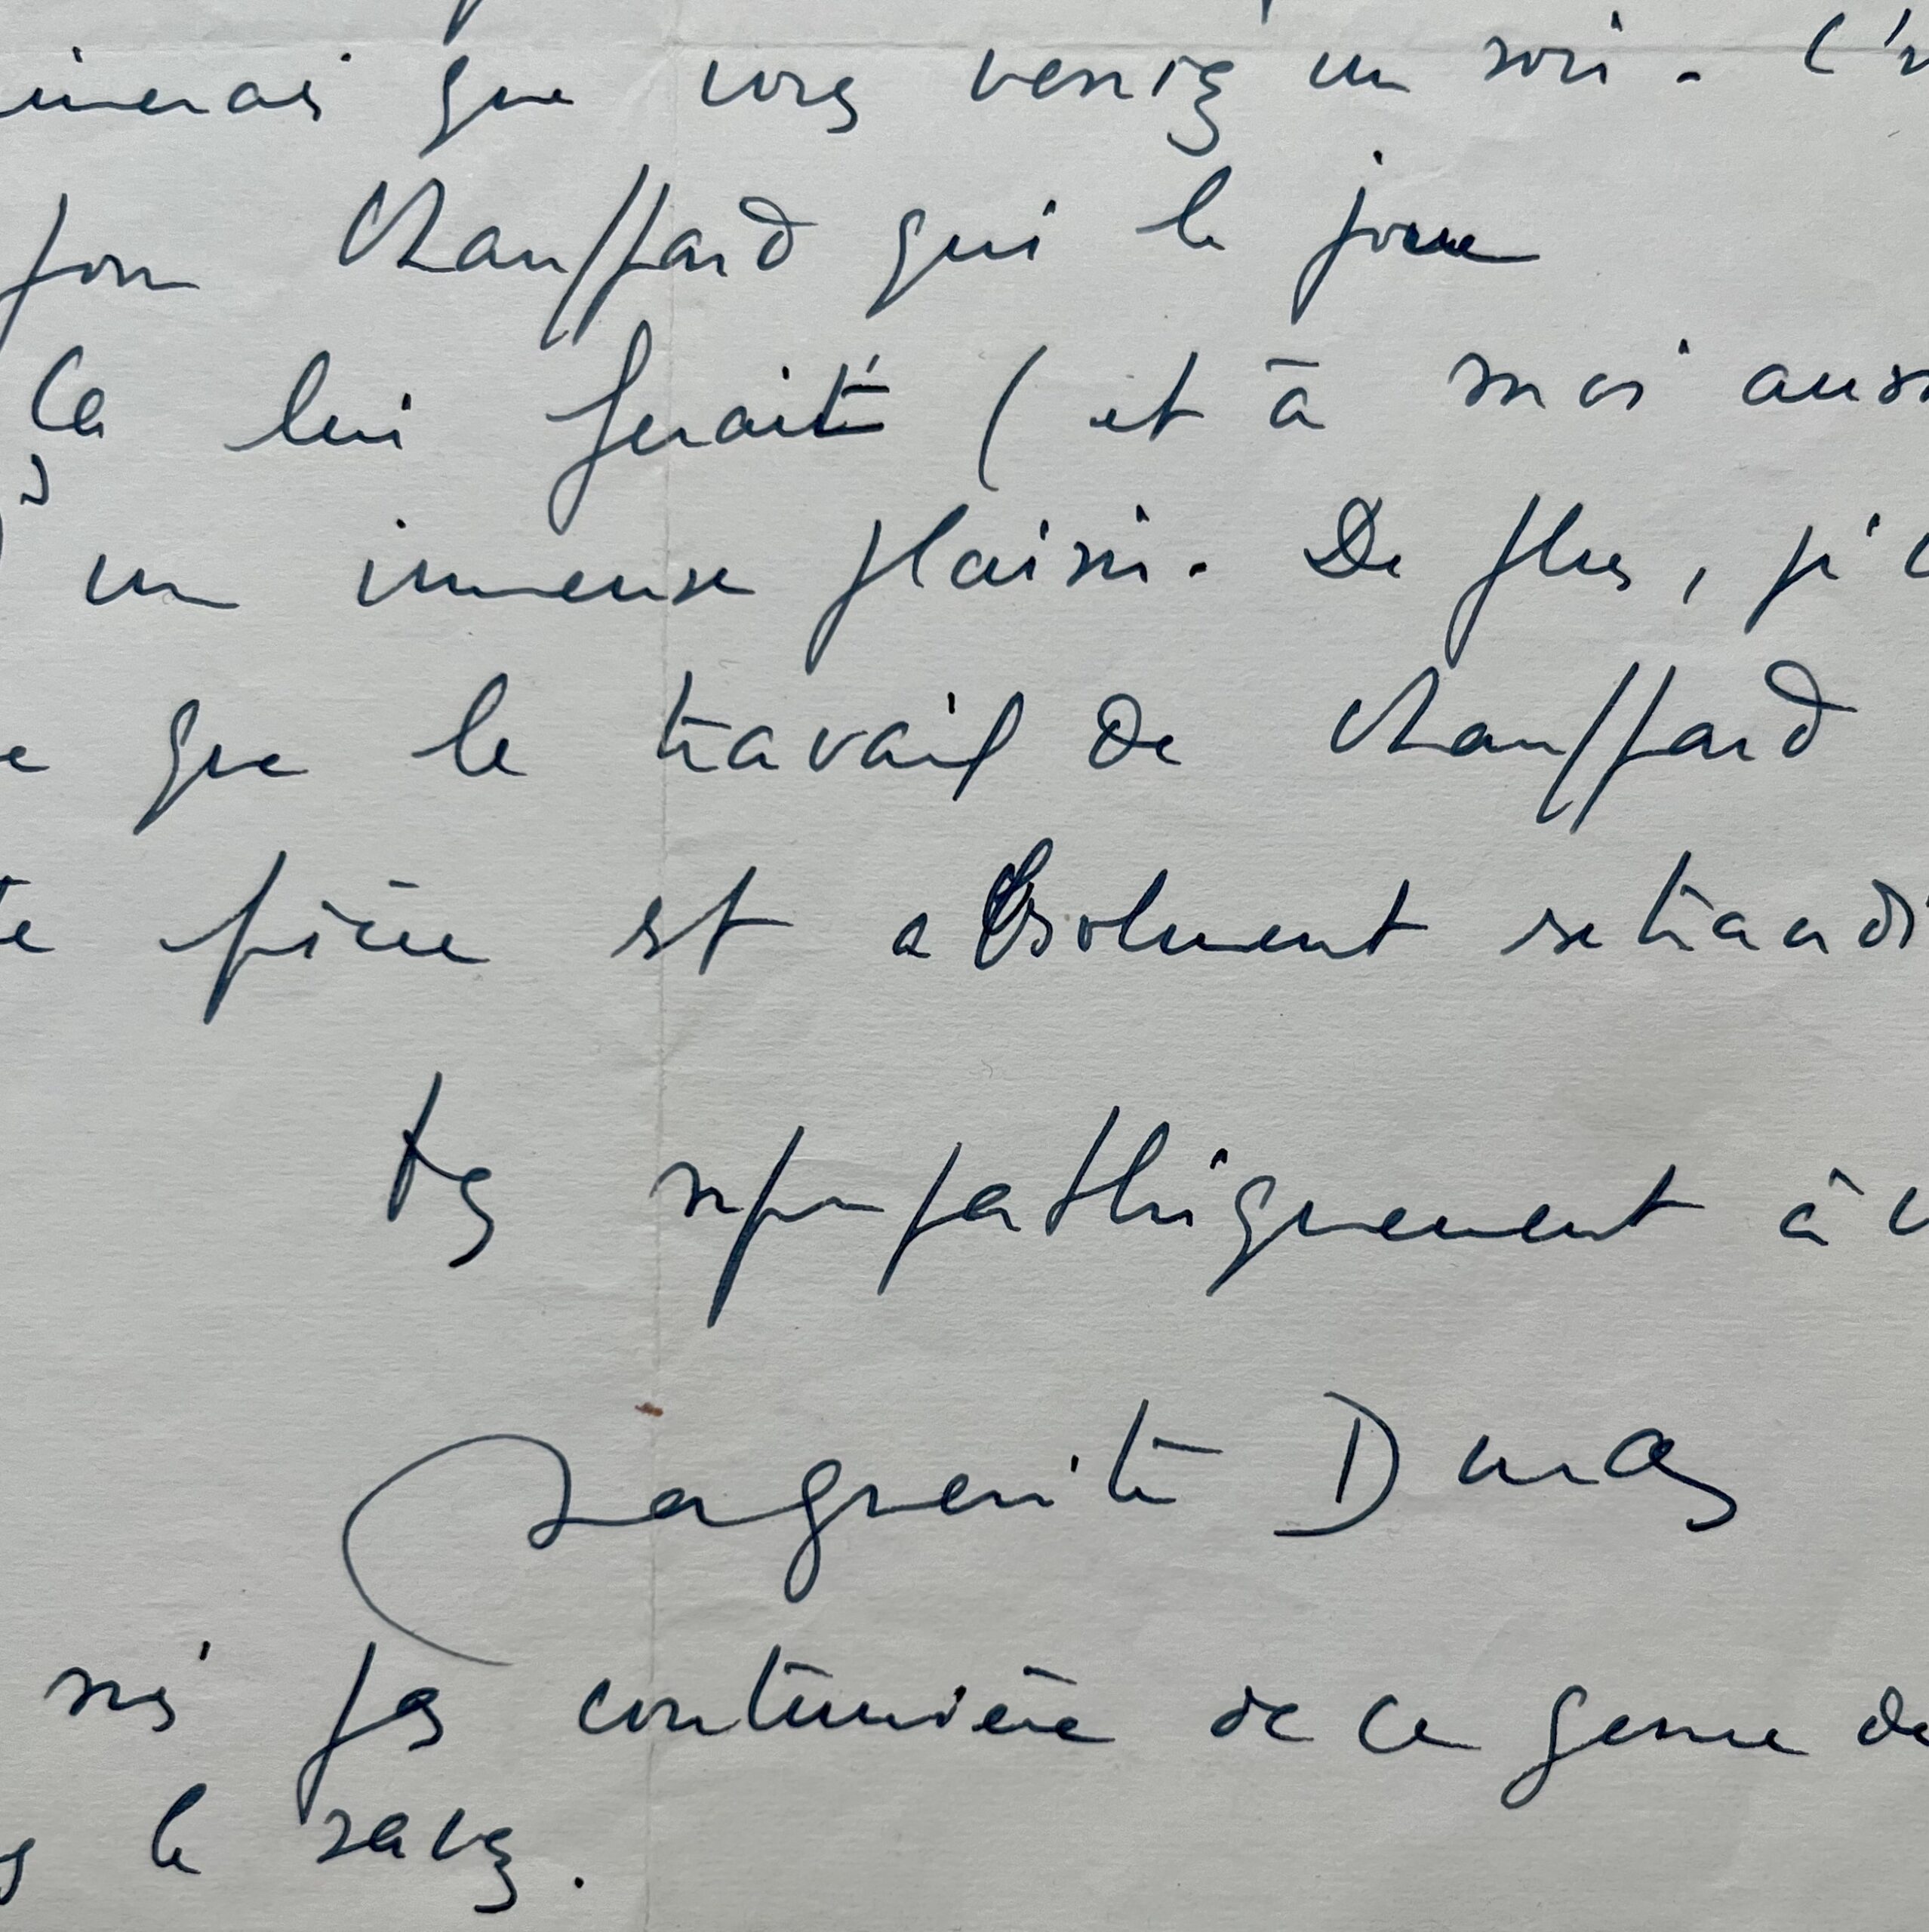 imerais que vous veniez un soir. C'e
pour Chauffard qui le joue
Ça lui ferait (et à moi aussi
) un immense plaisir. De plus, j'
e que le travail de Chauffard
te pièce est absolument extraordi
Très sympathiquement à v
Marguerite Duras
suis pas coutumière de ce genre de
s le savez.